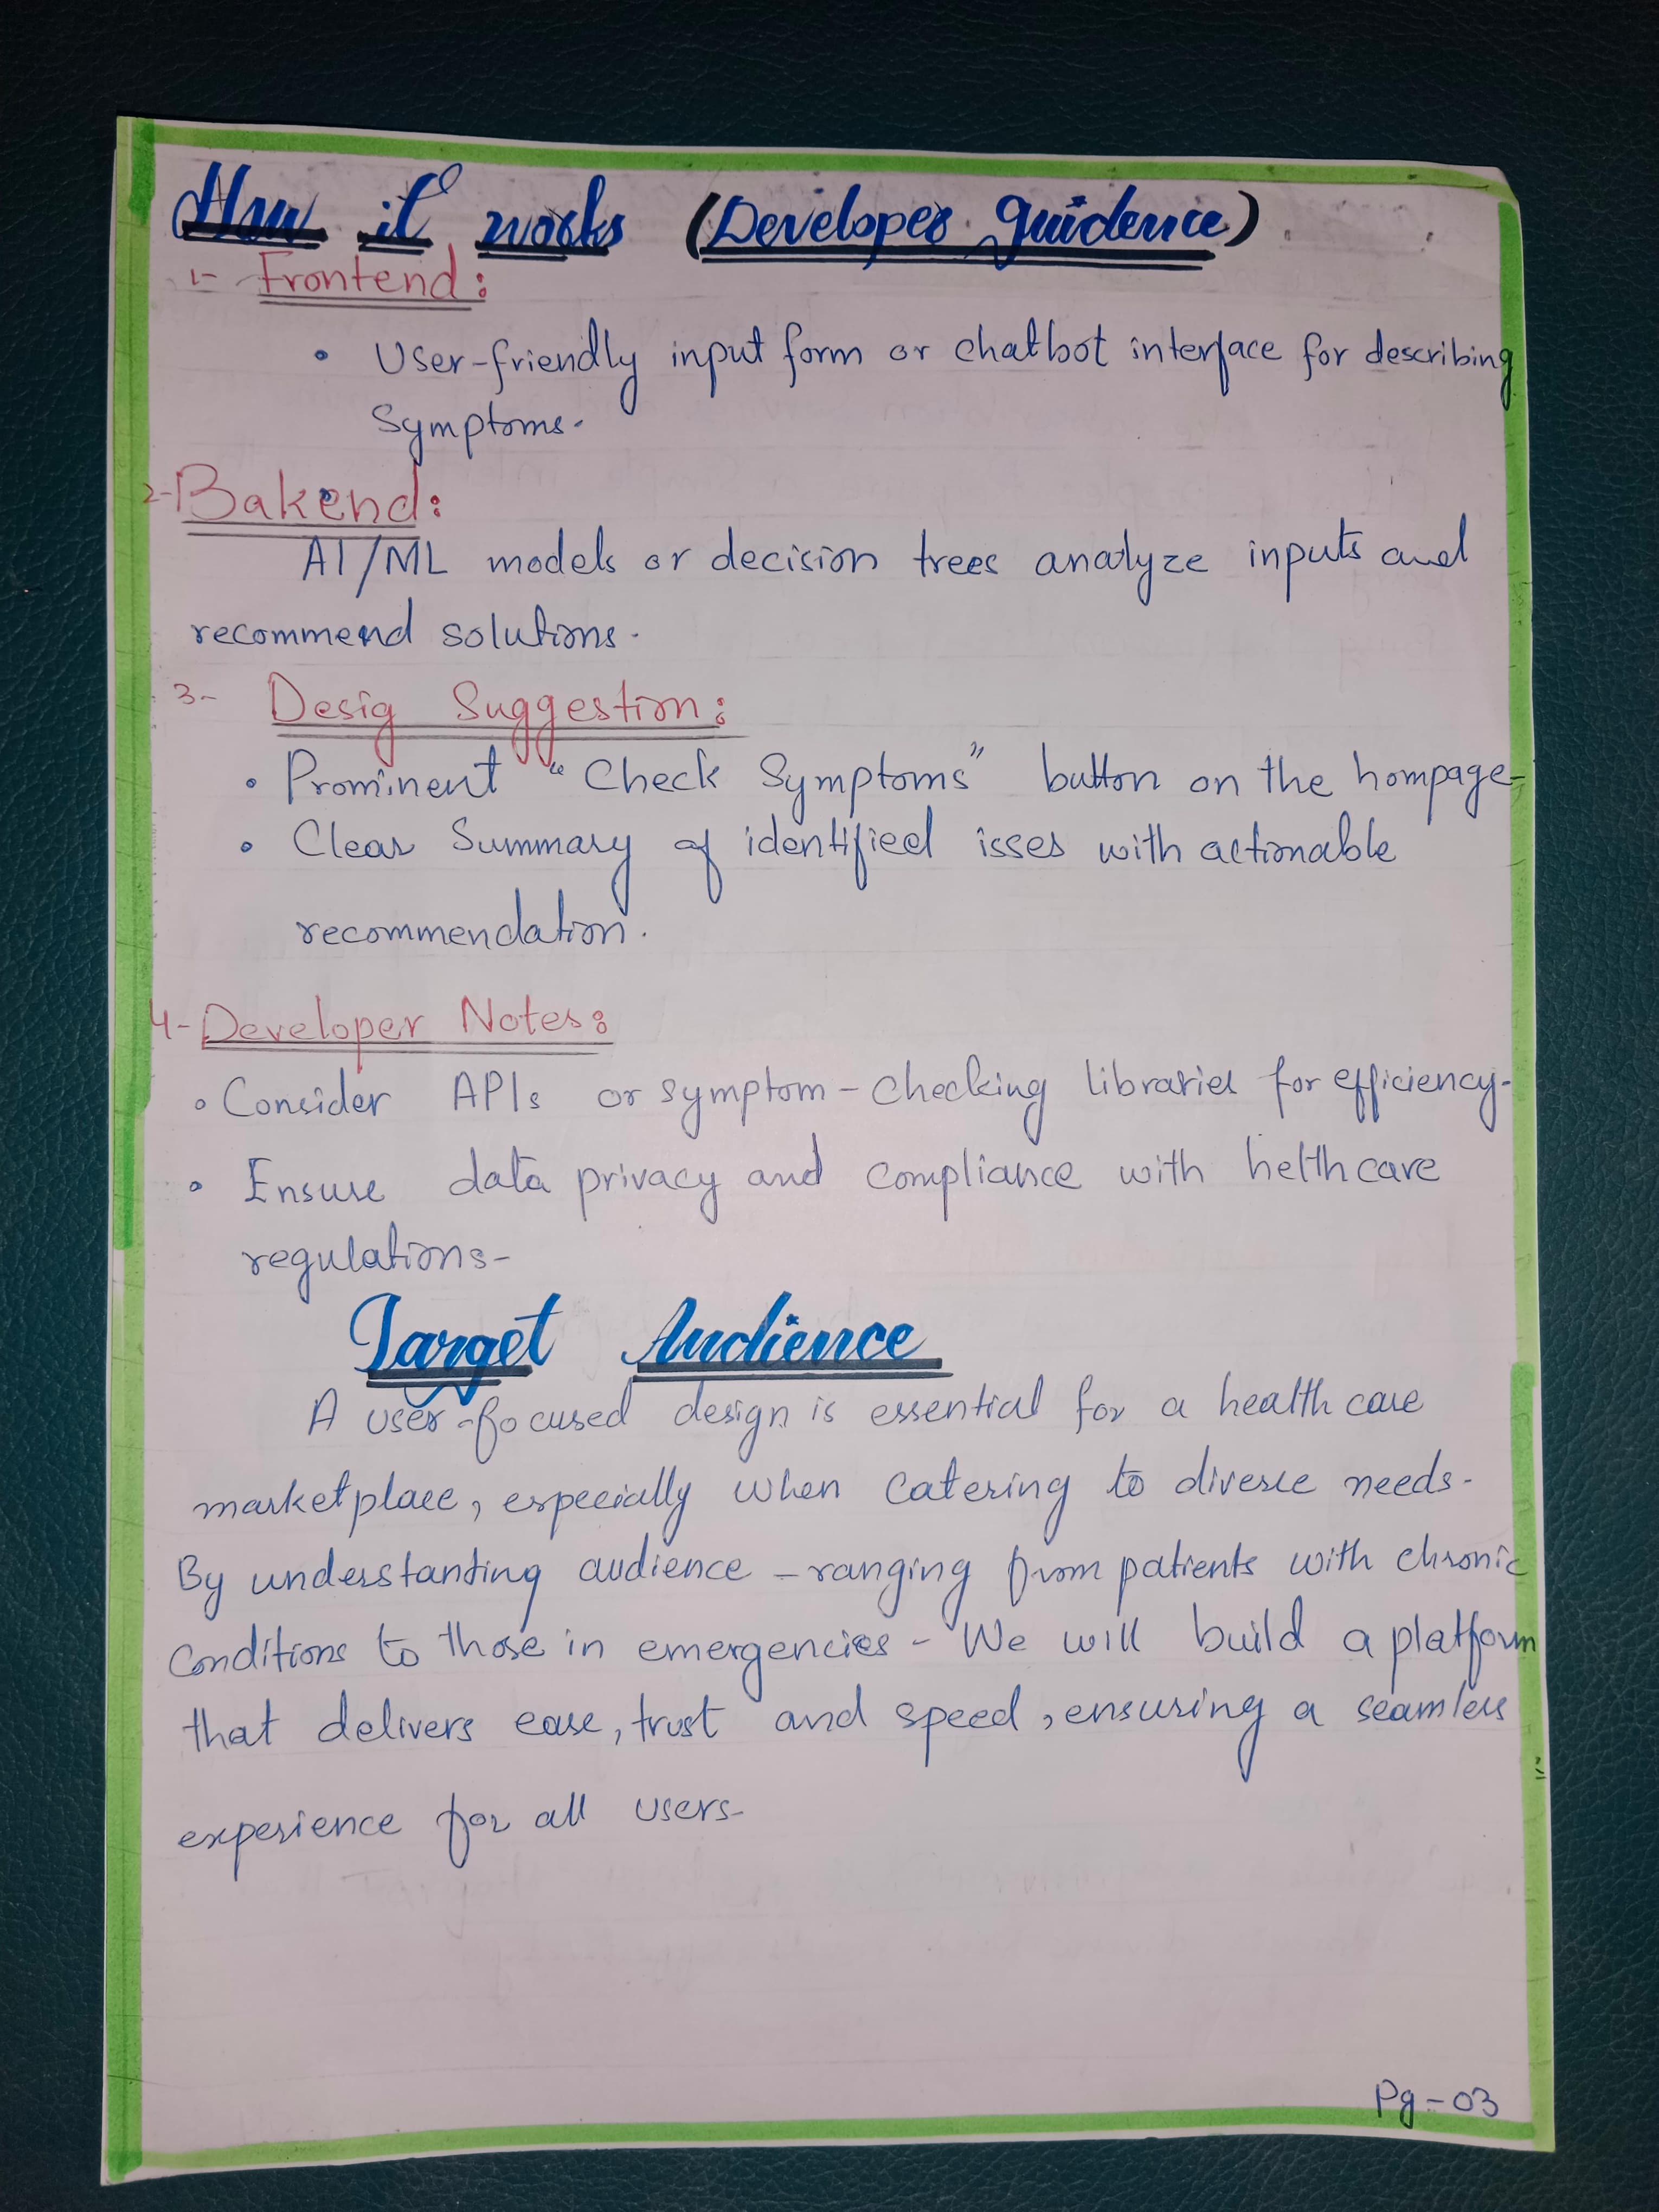 How it works (Developer guidence)
1- Frontend:
• User-friendly input form or chatbot interface for describing
Symptoms.
2- Bakend:
AI/ML models or decision trees analyze inputs and
recommend solutions.
3- Desig Suggestion:
• Prominent "Check Symptoms" button on the hompage-
• Clear Summary of identified isses with actionable
recommendation.
4- Developer Notes:
• Consider APIs or symptom-checking libraries for efficiency-
• Ensure data privacy and compliance with helthcare
regulations-
Target Audience
A user-focused design is essential for a health care
marketplace, especially when catering to diverse needs-
By understanting audience - ranging from patients with chronic
conditions to those in emergencies - We will build a platform
that delivers ease, trust and speed, ensuring a seamless
experience for all users-
Pg-03